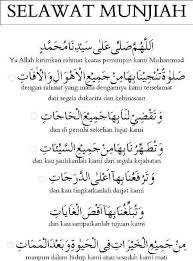 SELAWAT MUNJIAH
اَللّٰهُمَّ صَلِّ عَلٰى سَيِّدِنَا مُحَمَّدٍ
Ya Allah kirimkan rahmat keatas pemimpin kami Mohammad
صَلٰوةً تُنْجِيْنَا بِهَا مِنْ جَمِيْعِ الْاَهْوَالِ وَالْاٰفَاتِ
dengan rahmat yang mana dengannya kami terselamat
dari segala dukacita dan kebinasaan
وَتَقْضِيْ لَنَا بِهَا جَمِيْعَ الْحَاجَاتِ
dan di penuhi sekelian hajat kami
وَتُطَهِّرُنَا بِهَا مِنْ جَمِيْعِ السَّيِّئَاتِ
dan kau jauhkanlah kami dari segala kejahatan
وَتَرْفَعُنَا بِهَا اَعْلَى الدَّرَجَاتِ
dan kau tingkatkanlah darjat kami
وَتُبَلِّغُنَا بِهَا اَقْصَى الْغَايَاتِ
dan kau sampaikanlah tujuan kami
مِنْ جَمِيْعِ الْخَيْرَاتِ فِي الْحَيٰوةِ وَبَعْدَ الْمَمَاتِ
maupun dalam hidup kami atau sesudah kami mati